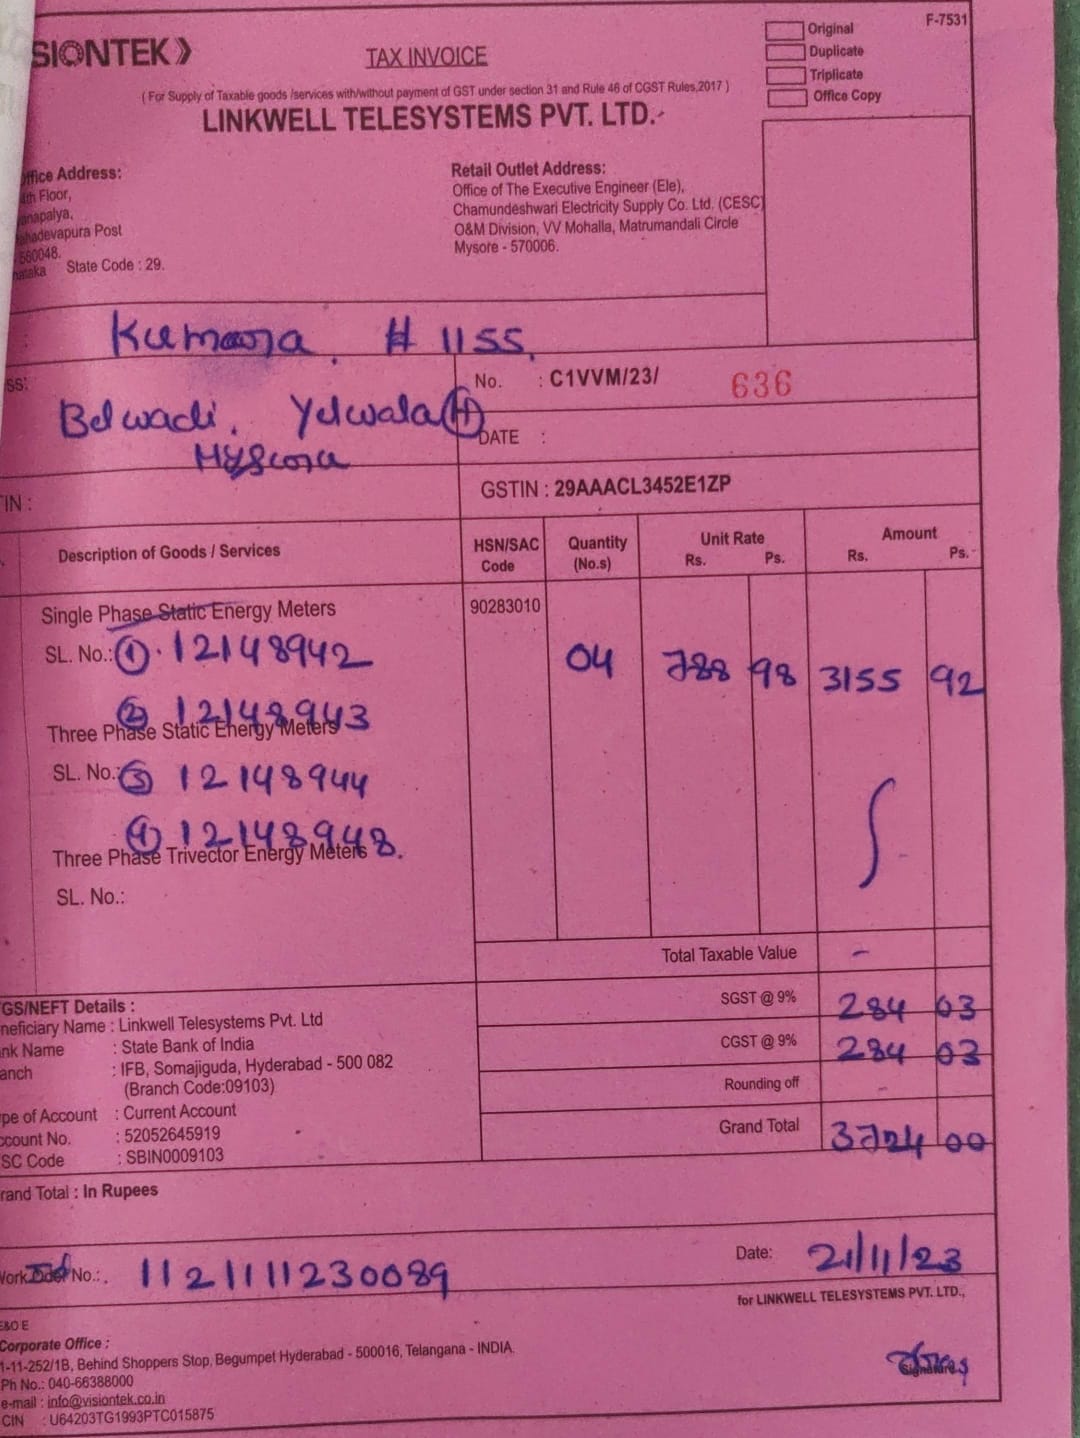 SIONTEK
TAX INVOICE
Original
Duplicate
Triplicate
Office Copy
F-7531
( For Supply of Taxable goods /services with/without payment of GST under section 31 and Rule 46 of CGST Rules,2017 )
LINKWELL TELESYSTEMS PVT. LTD.
ffice Address:
4th Floor,
anapalya,
ahadevapura Post
560048.
nataka State Code : 29.
Retail Outlet Address:
Office of The Executive Engineer (Ele),
Chamundeshwari Electricity Supply Co. Ltd. (CESC)
O&M Division, VV Mohalla, Matrumandali Circle
Mysore - 570006.
Kumara. # 1155,
ss:
No. : C1VVM/23/ 636
Belwadi, Yelwala (H)
DATE :
Mysora
TIN :
GSTIN : 29AAACL3452E1ZP
Description of Goods / Services
HSN/SAC Code
Quantity (No.s)
Unit Rate Rs. Ps.
Amount Rs. Ps.
Single Phase Static Energy Meters 90283010
SL. No.: ① 12148942 04 788 98 3155 92
② 12148943
Three Phase Static Energy Meters
SL. No. ③ 12148944
④ 12148948.
Three Phase Trivector Energy Meters
SL. No.:
Total Taxable Value -
SGST @ 9% 284 03
CGST @ 9% 284 03
Rounding off -
Grand Total 3724 00
GS/NEFT Details :
neficiary Name : Linkwell Telesystems Pvt. Ltd
nk Name : State Bank of India
anch : IFB, Somajiguda, Hyderabad - 500 082
(Branch Code:09103)
pe of Account : Current Account
ccount No. : 52052645919
SC Code : SBIN0009103
rand Total : In Rupees
Work No.: 1121111230089
Date: 21/11/23
for LINKWELL TELESYSTEMS PVT. LTD.,
E&O E
Corporate Office :
1-11-252/1B, Behind Shoppers Stop, Begumpet Hyderabad - 500016, Telangana - INDIA.
Ph No.: 040-66388000
e-mail : info@visiontek.co.in
CIN : U64203TG1993PTC015875
Signature